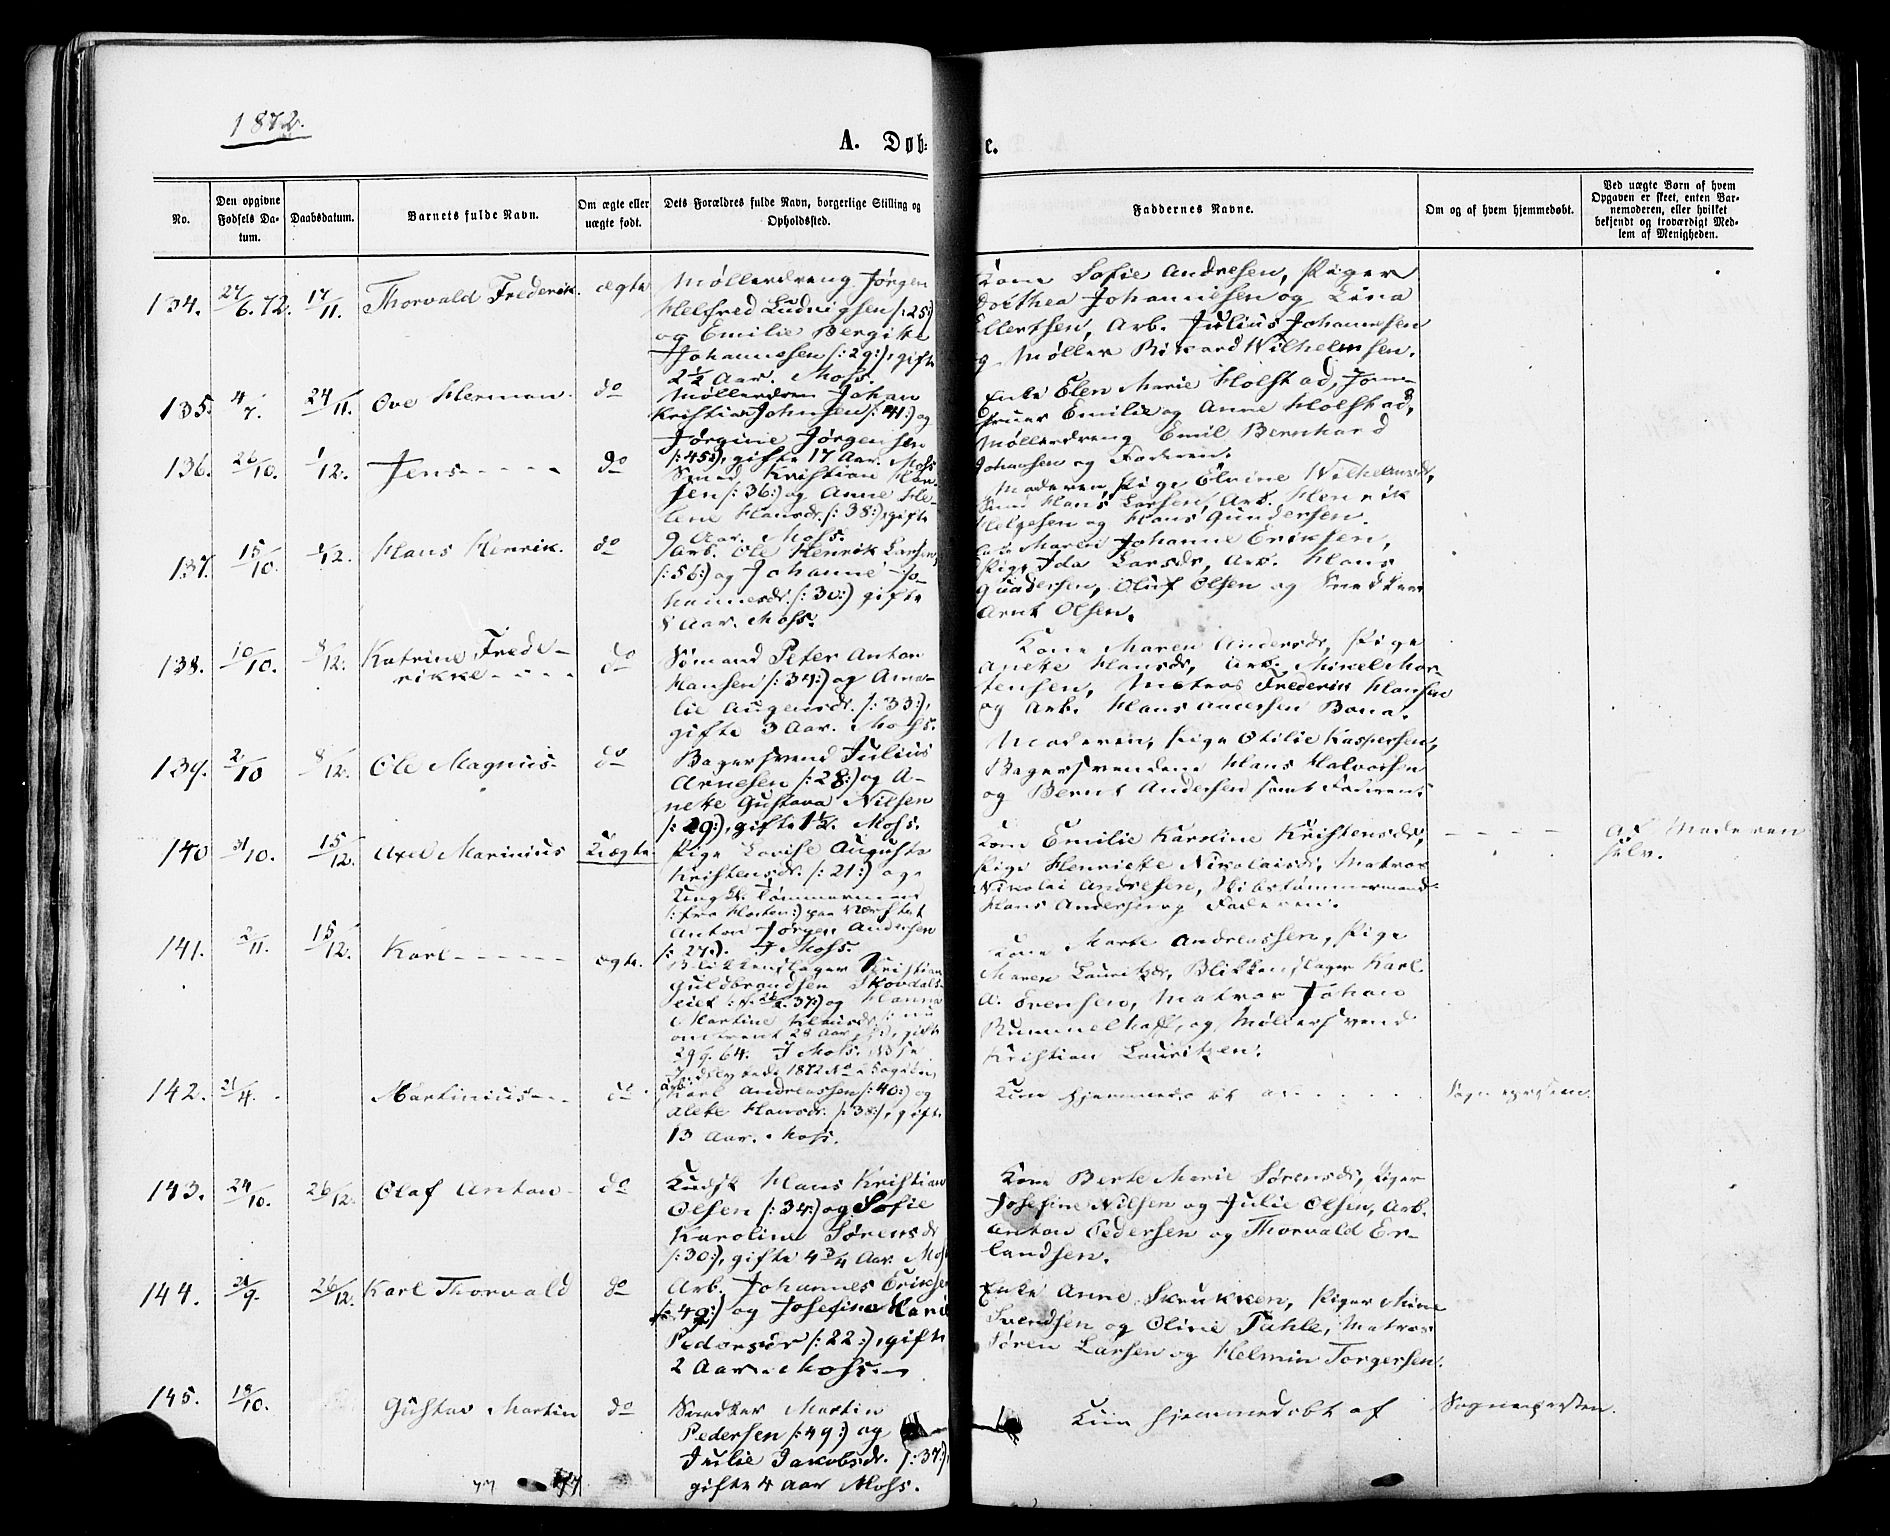 1872.
A. Døb-
e.
No.
Den opgivne
Fødsels Da-
tum.
Daabsdatum.
Barnets fulde Navn.
Om ægte eller
uægte født.
Dets Forældres fulde Navn, borgerlige Stilling og
Opholdssted.
Faddernes Navne.
Om og af hvem hjemmedøbt.
Ved uægte Børn af hvem
Opgaven er skeet, enten Bar-
nemoderen, eller hvilket
bekjendt og troværdigt Med-
lem af Menigheden.
134.
27/6.72.
17/11.
Thorvald Frederik.
ægte
Møllerdreng Jørgen
Helfred Ludvigsen /:25:/
og Emilie Bergite
Johannesen /:29:/, gifte
2½ Aar. Moss.
Kone Sofie Andresen, Piger
Dorthea Johannesen og Lina
Ellertsen, Arb. Julius Johannesen
og Møller Rikard Wilhelmsen.
135.
4/7.
24/11.
Ove Herman.
do
Johan
Kristian Johnsen /:41:/ og
Jørgine Jørgensen
/:45:/, gifte 17 Aar. Moss
Enke Elen Marie Holstad, Jom-
fruer Emilie og Anne Holstad,
Møllerdreng Emil Bernhard
Johansen og Faderen.
136.
26/10.
1/12.
Jens - - - - -
do
Smed Kristian
sen /:36:/ og Anne He-
lene Hansdr. /:38:/, gifte
9 Aar. Moss.
Moderen, Pige Elvine Wilhelmsdr,
Smed Hans Larsen, Arb. Henrik
Helgesen og Hans Gundersen.
137.
15/10.
1/12.
Hans Henrik.
do
Arb. Ole Henrik Larsen,
/:56:/ og Johanne Jo-
hannesdr. /:30:/ gifte
8 Aar. Moss.
Maren Johanne Eriksen,
Pige Ida Larsdr, Arb. Hans
Gundersen, Oluf Olsen og Snedker
Arnt Olsen.
138.
10/10.
8/12.
Katrine Frede-
rikke - - - -
do
Sømand Peter Anton
Hansen /:34:/ og Ama-
lie Augensdr. /:33:/,
gifte 3 Aar. Moss.
Kone Maren Andersdr, Pige
Anete Hansdr, Arb. Mikel Mor-
tensen, Matros Frederik Hansen
og Arb. Hans Andersen Bona.
139.
2/10
8/12.
Ole Magnus-
do
Bagersvend Julius
Arnesen /:28:/ og A-
nete Gustava Nilsen
/:29:/, gifte 1½. Moss.
Moderen, Pige Otilie Kaspersen,
Bagersvendene Hans Halvorsen
og Bernt Andersen samt Faderen.
140
31/10.
15/12.
Axel Marinius
Uægte.
Pige Lovise Auguste
Kristensdr. /:21:/ og
Ungk. Tømmermand
/:fra Horten:/ paa Værftet
Anton Jørgen Andersen
/:27:/. I Moss.
Kone Emilie Karoline Kristensdr,
Pige Henriette Nikolaisdr, Matros
Nikolai Andresen, Skibstømmermand
Hans Andersen og Faderen.
- - - -
Af Moderen
selv.
141.
2/11.
15/12.
Karl - - - - - -
ægte.
Blikkenslager Kristian
Guldbrandsen Skovdals-
eiet
og Hanna
Martine
gifte
29/9.64. I Moss.
Kone Marte Andreassen, Pige
Maren Lauritzdr, Blikkenslager Karl
A. Evensen, Matros Johan
Rummelhoff, og Møllersvend
Kristian Lauritzen.
142.
Martinius - - -
do.
Arb. Karl Andreassen /:40:/ og
Alete Hansdr. /:38:/, gifte
13 Aar. Moss.
Kun hjemmedøbt af. . . . . .
Sognepresten.
143.
24/10.
26/12.
Olaf Anton-
do
Kudsk Hans Kristian
Olsen /:34:/ og Sofie
Karoline Sørensdr
/:30:/, gifte 4¾ Aar. Moss
Kone Berte Marie Sørensdr, Piger
Josefine Nilsen og Julie Olsen, Arb.
Anton Pedersen og Thorvald Er-
landsen.
144.
26/12.
Karl Thorvald
do
Arb. Johannes Eriksen
/:49:/ og Josefine Marie
Pedersdr /:22:/, gifte
2 Aar. Moss.
Enke Anne Skrukken, Piger Mine
Svendsen og Oline Tahle, Matros
Søren Larsen og Helmin Torgersen.
145.
19/10.
Gustav Martin
do
Snedker Martin
Pedersen /:49:/ og
Julie Jakobsdr. /:37:/,
gifte 4 Aar Moss.
Kun hjemmedøbt af
Sognepresten.
77
77